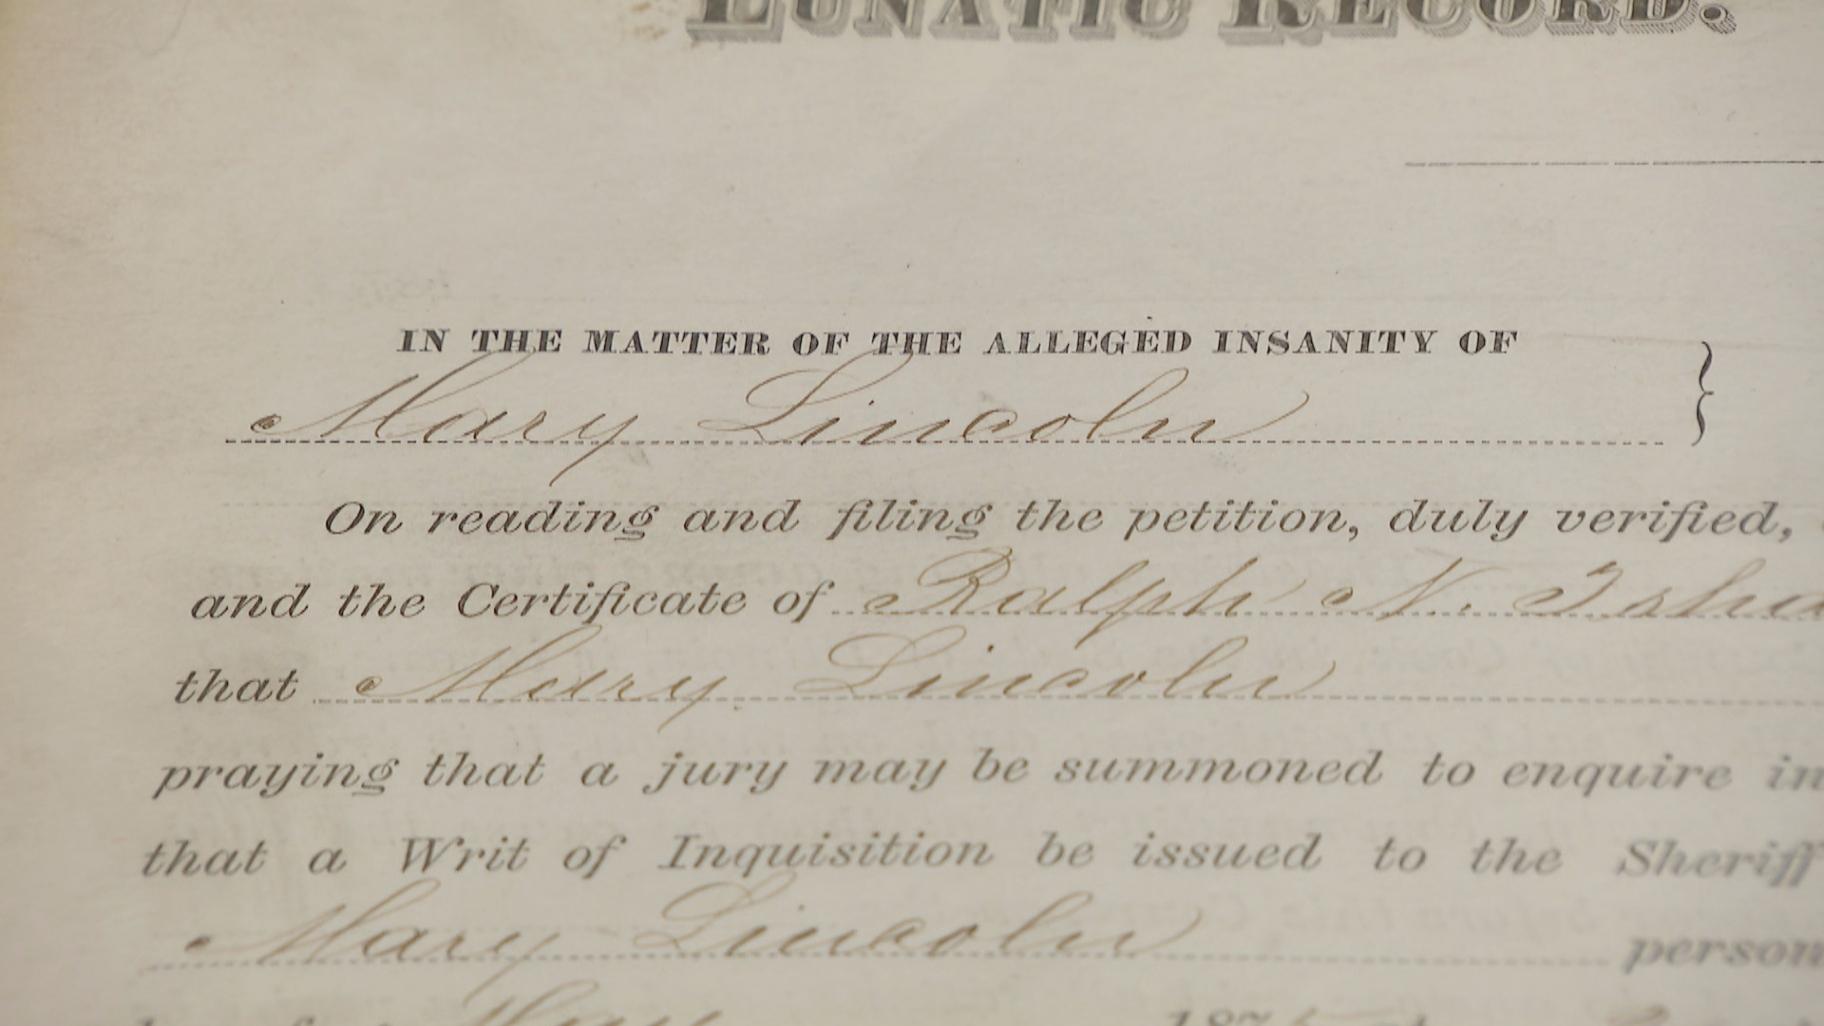 LUNATIC RECORD.
IN THE MATTER OF THE ALLEGED INSANITY OF
Mary Lincoln
On reading and filing the petition, duly verified,
and the Certificate of Ralph N. Isha
that Mary Lincoln
praying that a jury may be summoned to enquire in
that a Writ of Inquisition be issued to the Sheriff
Mary Lincoln person
May 1875